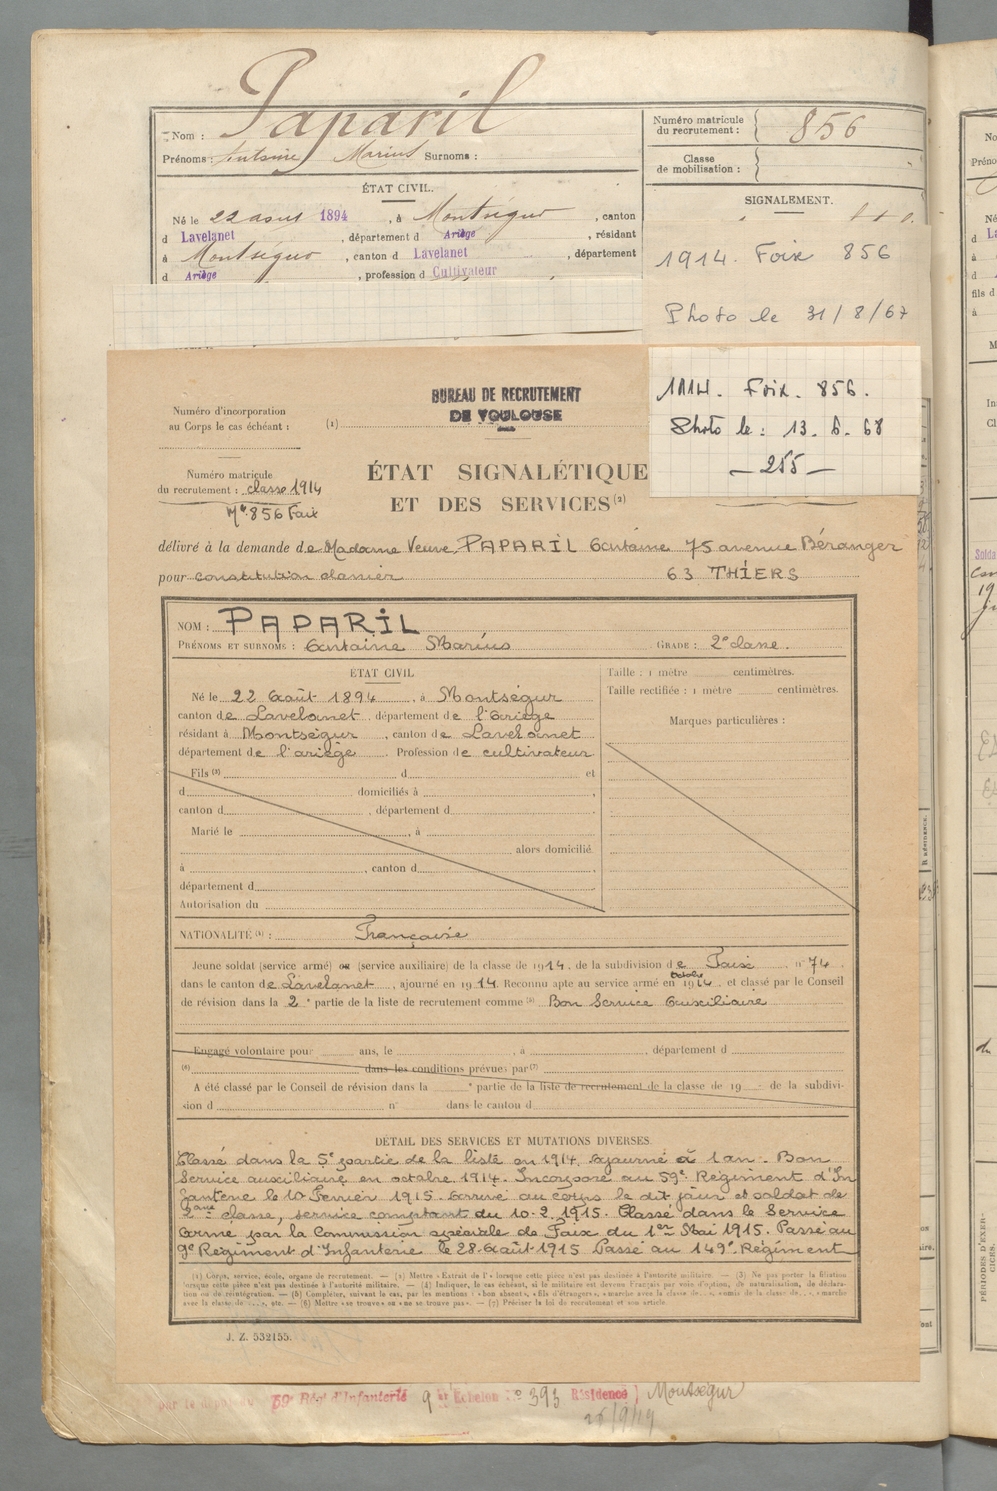 Nom : Paparil
Prénoms : Antoine Marius Surnoms :
Numéro matricule
du recrutement : 856
Classe
de mobilisation :
ÉTAT CIVIL.
Né le 22 aout 1894, à Montségur, canton
d Lavelanet, département d Ariège, résidant
à Montségur, canton d Lavelanet, département
d Ariège, profession d Cultivateur
SIGNALEMENT.
1914. Foix 856
Photo le 31/8/67
1914. Foix. 856.
Photo le : 13. 6. 68
— 255 —
Numéro d'incorporation
au Corps le cas échéant :
(1)
BUREAU DE RECRUTEMENT
DE TOULOUSE
Numéro matricule
du recrutement : classe 1914
Mle 856 Foix
ÉTAT SIGNALÉTIQUE
ET DES SERVICES (2)
délivré à la demande de Madame Veuve PAPARIL Antoine 75 avenue Béranger
pour constitution dossier 63 THIERS
NOM : PAPARIL
PRÉNOMS ET SURNOMS : Antoine Marius GRADE : 2e classe.
ÉTAT CIVIL
Né le 22 Août 1894, à Montségur
canton de Lavelanet, département de l'Ariège
résidant à Montségur, canton de Lavelanet
département de l'ariège Profession de cultivateur
Fils (3) d et
d domiciliés à ,
canton d , département d
Marié le , à
alors domicilié
à , canton d
département d
Autorisation du
Taille : 1 mètre centimètres.
Taille rectifiée : 1 mètre centimètres.
Marques particulières :
NATIONALITÉ (4) : Française
Jeune soldat (service armé) ou (service auxiliaire) de la classe de 1914. de la subdivision de Foix n° 74.
dans le canton de Lavelanet, ajourné en 1914. Reconnu apte au service armé en octobre 1914. et classé par le Conseil
de révision dans la 2e partie de la liste de recrutement comme (5) Bon Service Auxiliaire
Engagé volontaire pour ans, le , à , département d
(6) dans les conditions prévues par (7)
A été classé par le Conseil de révision dans la e partie de la liste de recrutement de la classe de 19 de la subdivi-
sion d n° dans le canton d
DÉTAIL DES SERVICES ET MUTATIONS DIVERSES.
Classé dans la 5e partie de la liste en 1914. Ajourné à 1 an. Bon
Service auxiliaire en octobre 1914. Incorporé au 59e Régiment d'In
fanterie le 10 Février 1915. Arrivé au corps le dit jour et soldat de
2ème classe, service comptant du 10-2-1915. Classé dans le Service
Armé par la Commission spéciale de Foix du 1er Mai 1915. Passé au
9e Régiment d'Infanterie le 28 Août 1915. Passé au 149e Régiment
(1) Corps, service, école, organe de recrutement. — (2) Mettre « Extrait de l' » lorsque cette pièce n'est pas destinée à l'autorité militaire. — (3) Ne pas porter la filiation
lorsque cette pièce n'est pas destinée à l'autorité militaire. — (4) Indiquer, le cas échéant, si le militaire est devenu Français par voie d'option, de naturalisation, de déclara-
tion ou de réintégration. — (5) Compléter, suivant le cas, par les mentions : « bon absent », « fils d'étrangers », « marche avec la classe de... », « omis de la classe de... », « marche
avec la classe de... », etc. — (6) Mettre « se trouve » ou « ne se trouve pas ». — (7) Préciser la loi de recrutement et son article.
J. Z. 532155.
par le dépôt du 59e Régt d'Infanterie 9 Échelon N° 393 Résidence Montségur